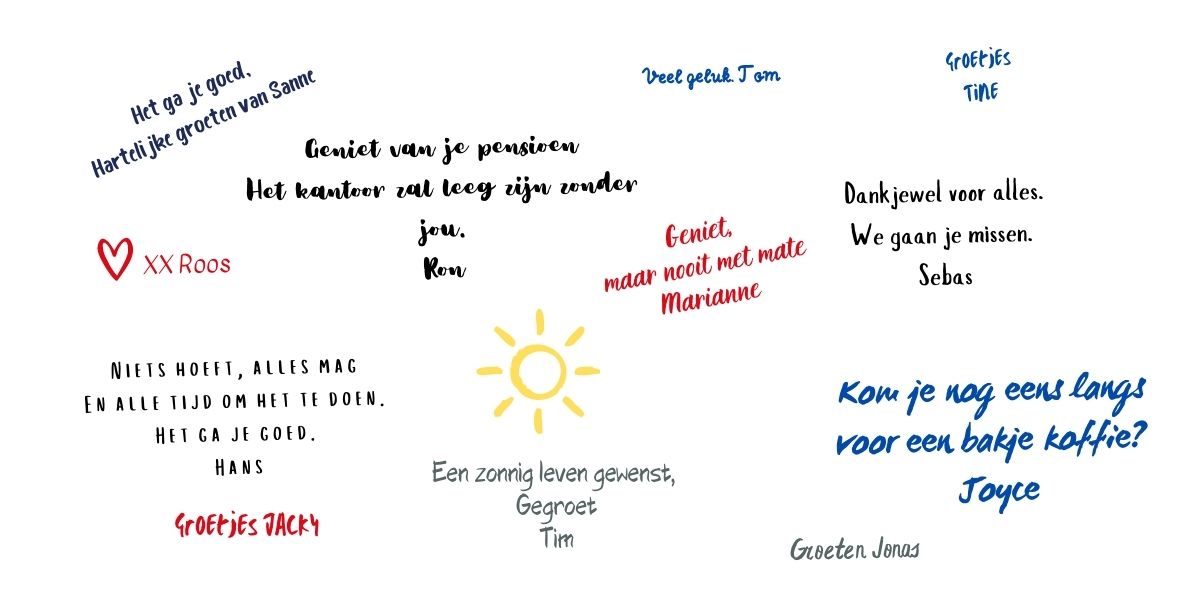 Het ga je goed.
Hartelijke groeten van Sanne
Veel geluk. Tom
GROETJES
TINE
Geniet van je pensioen
Het kantoor zal leeg zijn zonder
jou.
Ron
Dankjewel voor alles.
We gaan je missen.
Sebas
XX Roos
Geniet,
maar nooit met mate
Marianne
NIETS HOEFT, ALLES MAG
EN ALLE TIJD OM HET TE DOEN.
HET GA JE GOED.
HANS
Kom je nog eens langs
voor een bakje koffie?
Joyce
Een zonnig leven gewenst,
Gegroet
Tim
GROETJES JACKY
Groeten Jonas